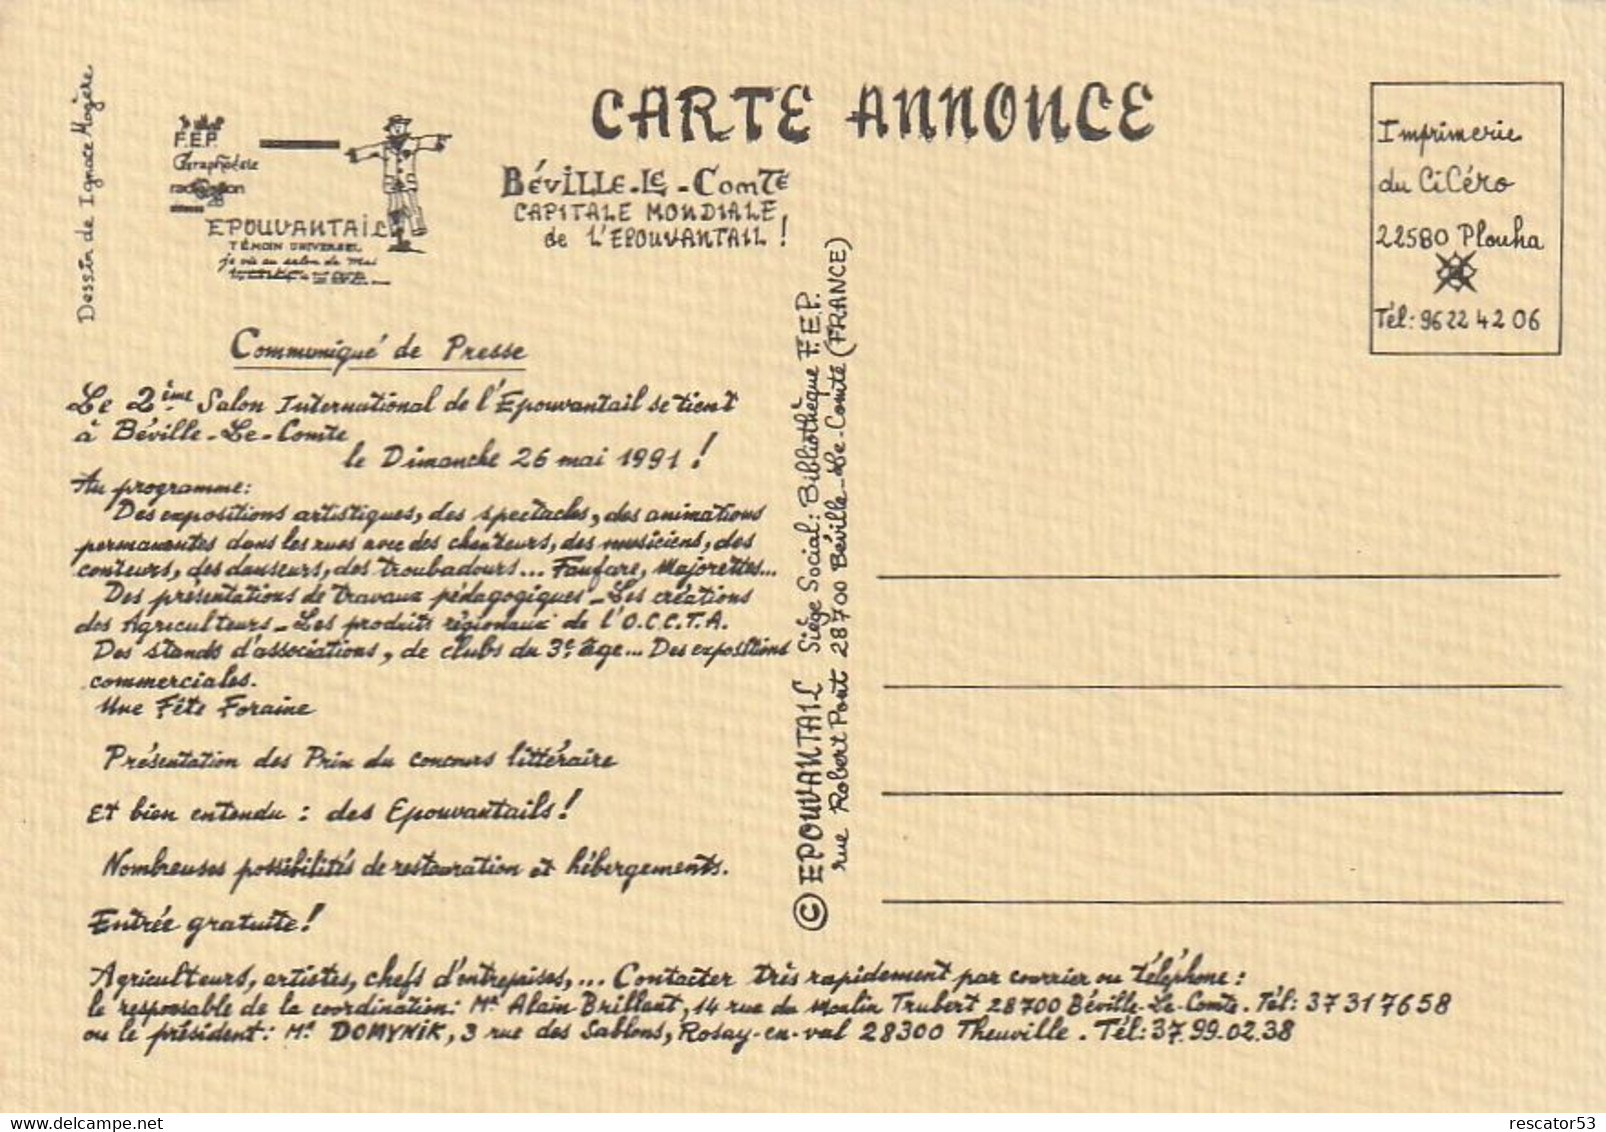 CARTE ANNONCE
Dessin de Ignace Mazère
F.E.P.
EPOUVANTAIL
TÉMOIN UNIVERSEL
je vis au salon de Mai
BéVILLE-LE-COMTE
CAPITALE MONDIALE
de L'EPOUVANTAIL !
Imprimerie
du CiCéro
22580 Plouha
Tél: 96 22 42 06
Communiqué de Presse
Le 2ème Salon International de l'Epouvantail se tient
à Béville-Le-Comte
le Dimanche 26 mai 1991 !
Au programme:
Des expositions artistiques, des spectacles, des animations
permanentes dans les rues avec des chanteurs, des musiciens, des
conteurs, des danseurs, des troubadours... Fanfare, Majorettes...
Des présentations de travaux pédagogiques - Les créations
des Agriculteurs - Les produits régionaux de l'O.C.C.T.A.
Des stands d'associations, de clubs du 3e age... Des expositions
commerciales.
Une Fête Foraine
Présentation des Prix du concours littéraire
Et bien entendu : des Epouvantails !
Nombreuses possibilités de restauration et hébergements.
Entrée gratuite !
© EPOUVANTAIL Siége Social: Bibliothèque F.E.P.
rue Robert Pont 28700 Béville-Le-Comte (FRANCE)
Agriculteurs, artistes, chefs d'entreprises,... Contacter très rapidement par courrier ou téléphone :
le responsable de la coordination: Mr Alain Brillant, 14 rue du Moulin Trubert 28700 Béville-Le-Comte. Tél: 37 31 76 58
ou le président: Mr DOMYNIK, 3 rue des Sablons, Rosay-en-val 28300 Theuville. Tél: 37.99.02.38
www.delcampe.net
rescator53